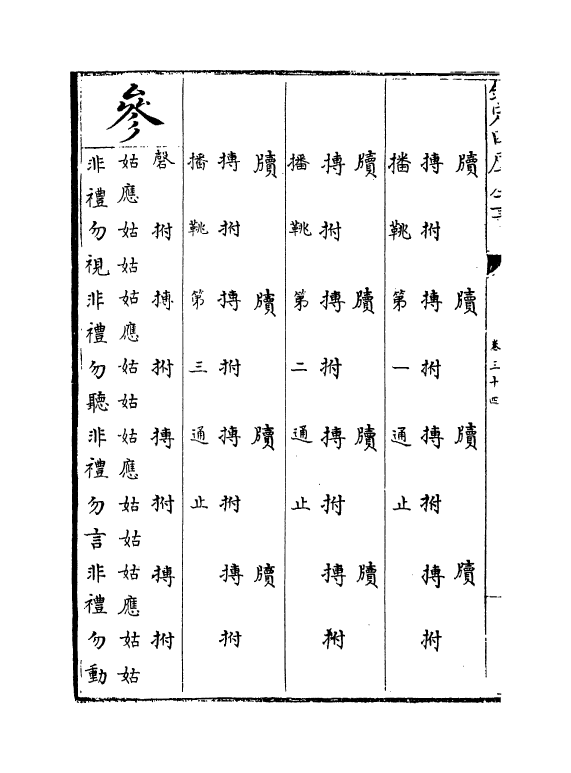 卷三十四
牘牘牘牘
搏拊搏拊搏拊搏拊
播鞉第一通止
牘牘牘牘
搏拊搏拊搏拊搏拊
播鞉第二通止
牘牘牘牘
搏拊搏拊搏拊搏拊
播鞉第三通止
參
磬拊搏拊搏拊搏拊
姑應姑姑姑應姑姑姑應姑姑姑應姑姑
非禮勿視非禮勿聽非禮勿言非禮勿動